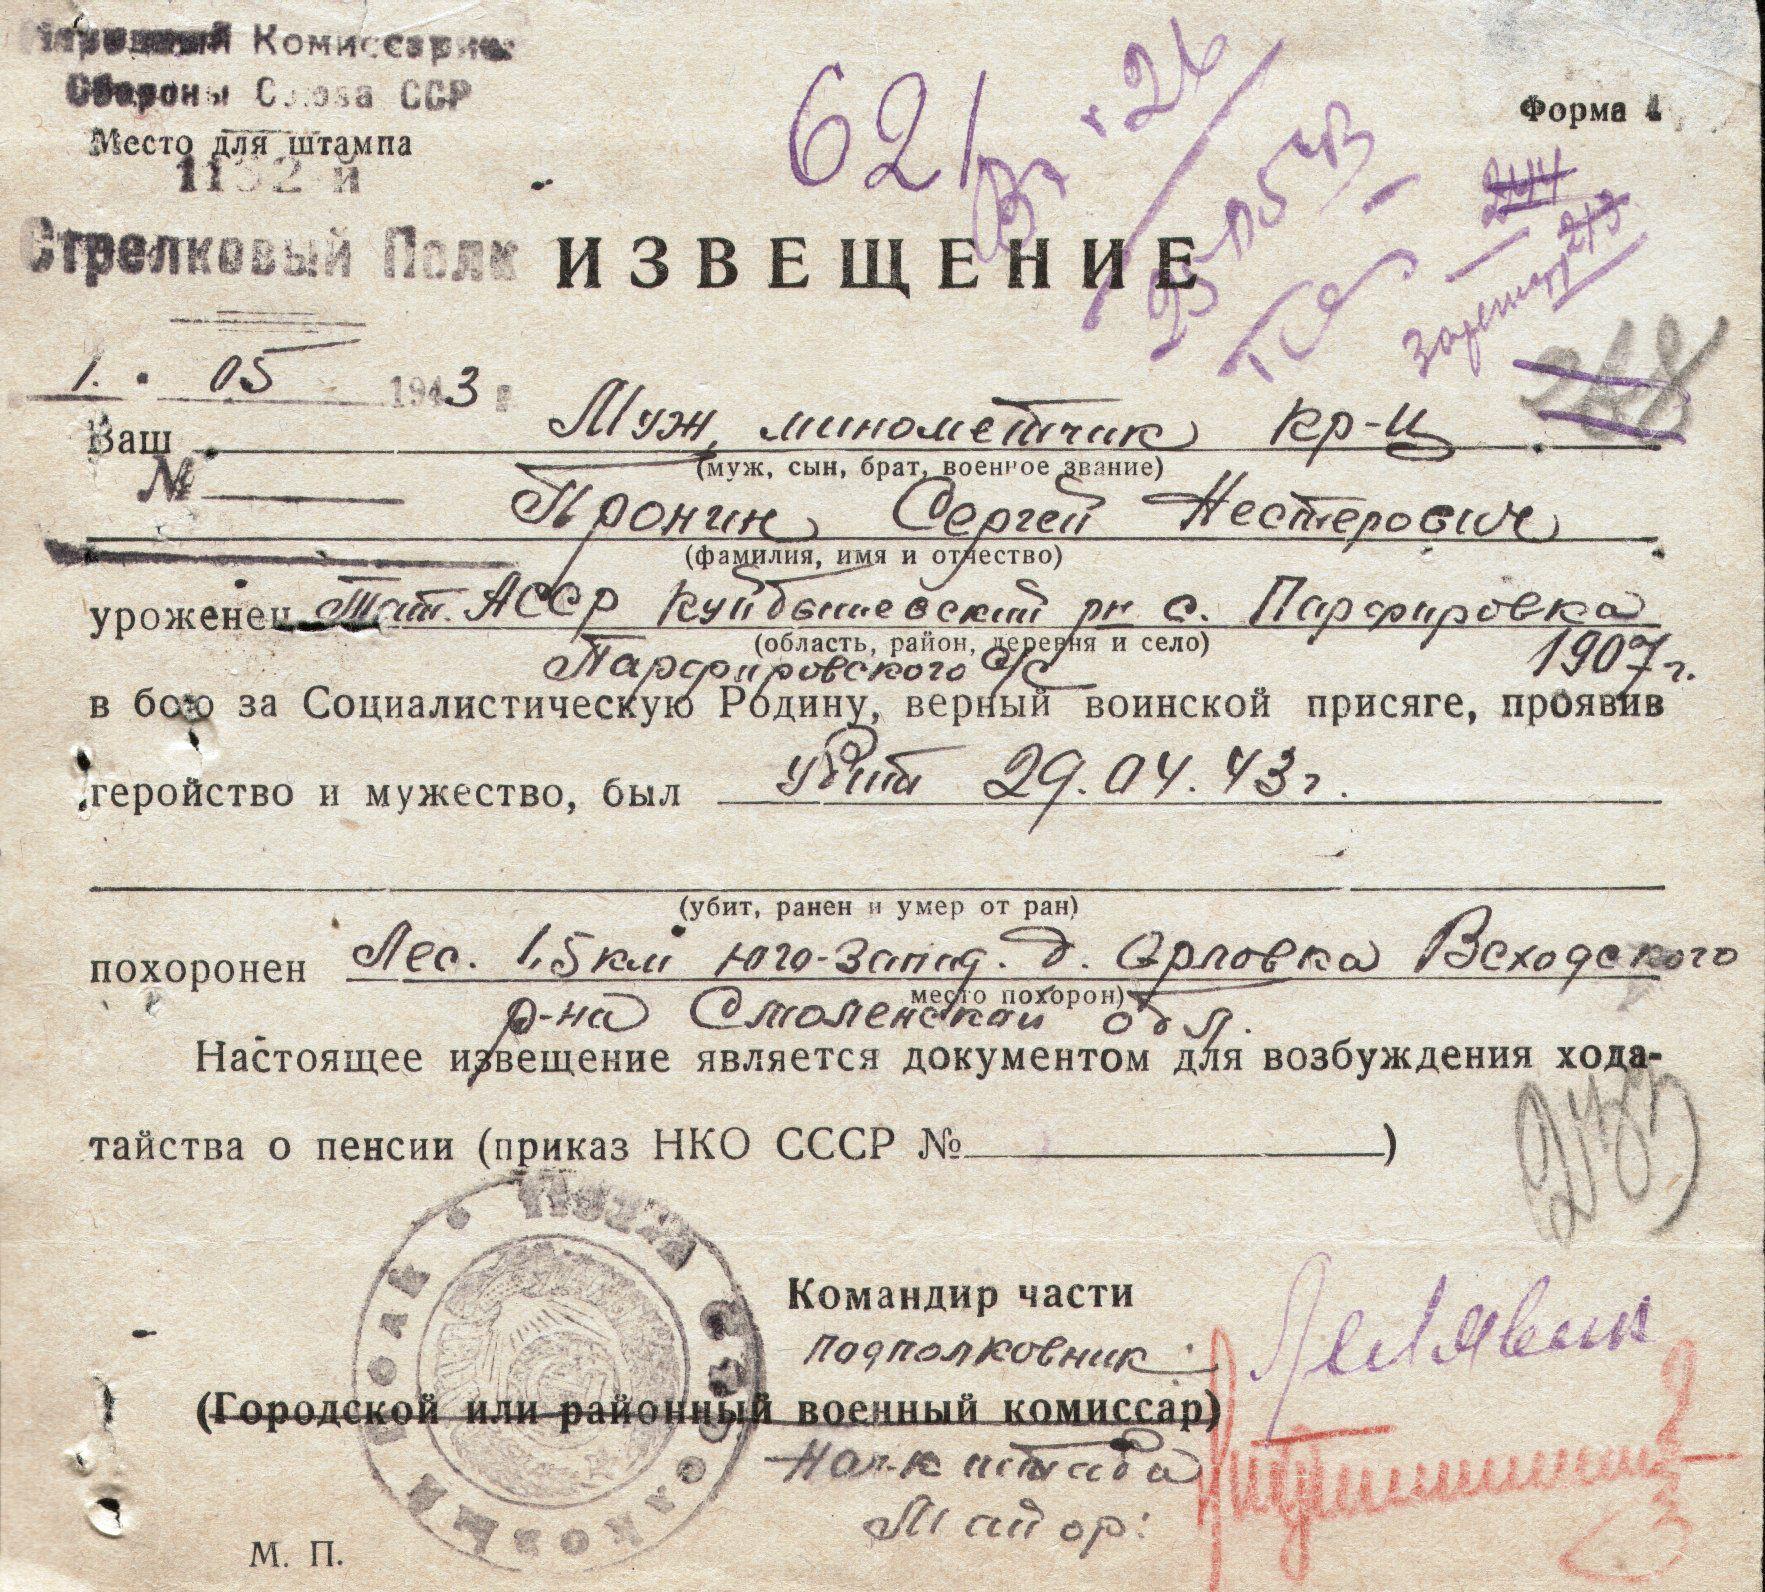 Народный Комиссариат
Обороны Союза ССР
Место для штампа
1152-й
Стрелковый Полк
Форма 4
621
244
213
ИЗВЕЩЕНИЕ
1. 05 1943 г.
Ваш Муж, минометчик кр-ц
(муж, сын, брат, военное звание)
№
Пронин Сергей Нестерович
(фамилия, имя и отчество)
уроженец Тат. АССР Куйбышевский рн с. Парфировка
(область, район, деревня и село)
Парфировского с/с 1907 г.
в бою за Социалистическую Родину, верный воинской присяге, проявив
геройство и мужество, был убит 29.04.43 г.
(убит, ранен и умер от ран)
похоронен Лес. 1,5 км юго-запад. д. Орловка Всходского
место похорон)
р-на Смоленской обл.
Настоящее извещение является документом для возбуждения хода-
тайства о пенсии (приказ НКО СССР № )
Командир части
подполковник:
(Городской или районный военный комиссар)
Нач-к штаба
Майор:
М. П.